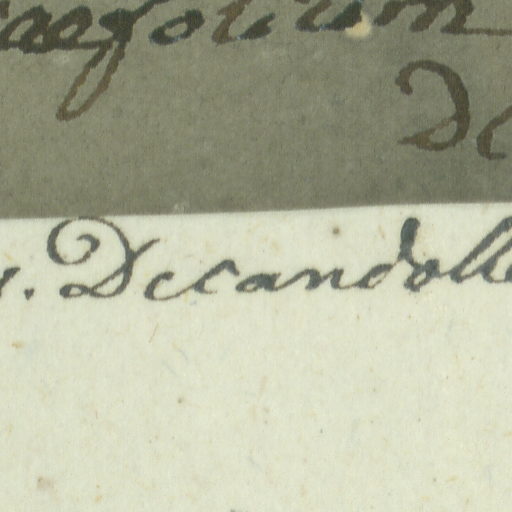 aefolium
De
v. Decandolle